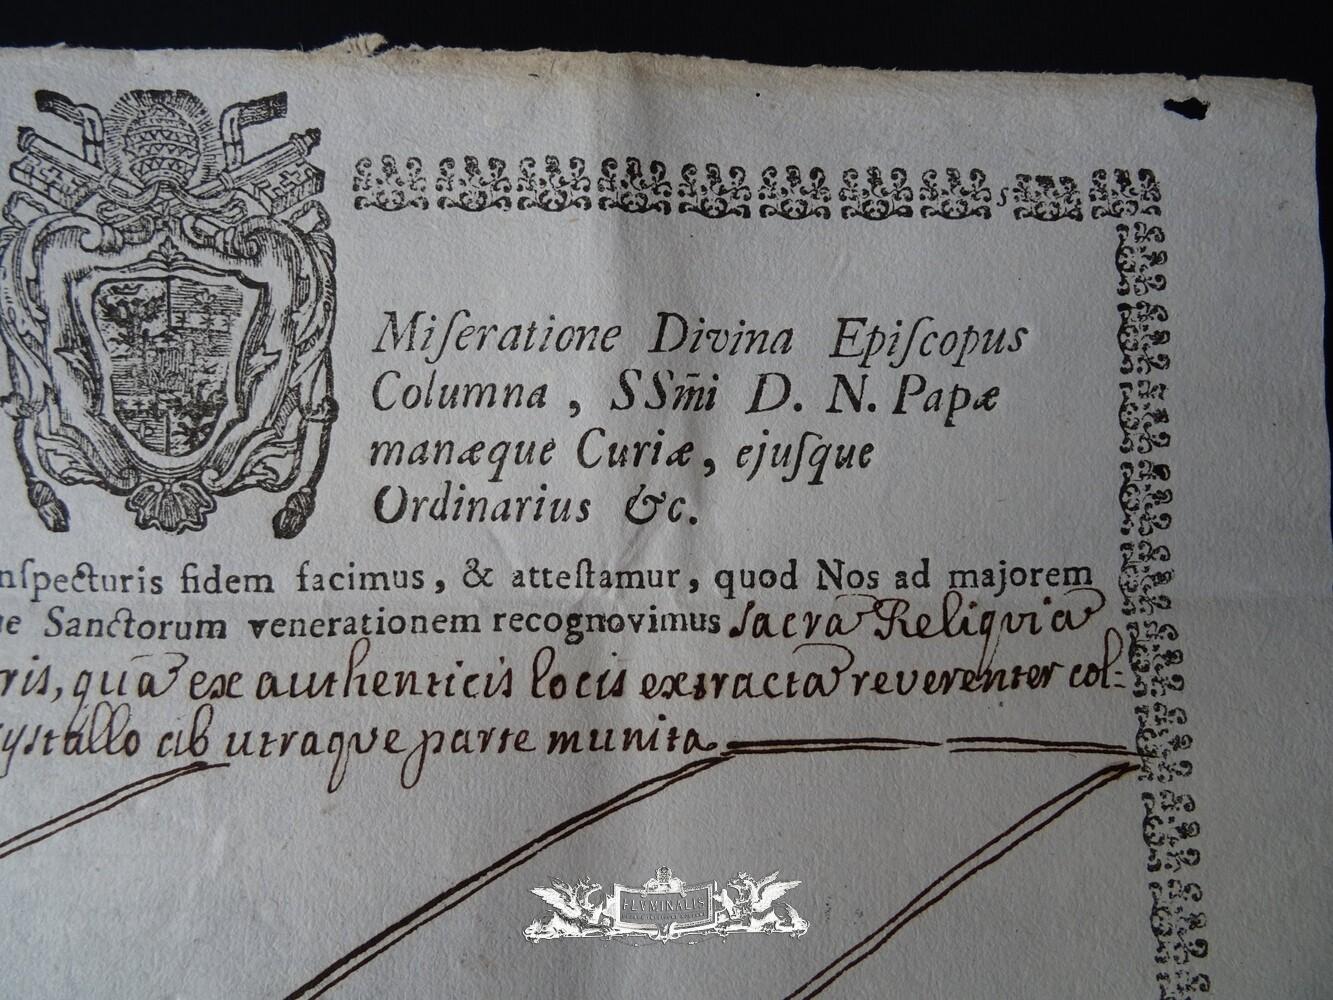 Miſeratione Divina Epiſcopus
Columna, SSm̃i D. N. Papæ
manæque Curiæ, ejuſque
Ordinarius &c.
nſpecturis fidem facimus, & atteſtamur, quod Nos ad majorem
ue Sanctorum venerationem recognovimus Sacrã Reliquiã
ris, quã ex authenticis locis extractã reverenter col:
ystallo ab utraque parte munita
FLVMINALIS